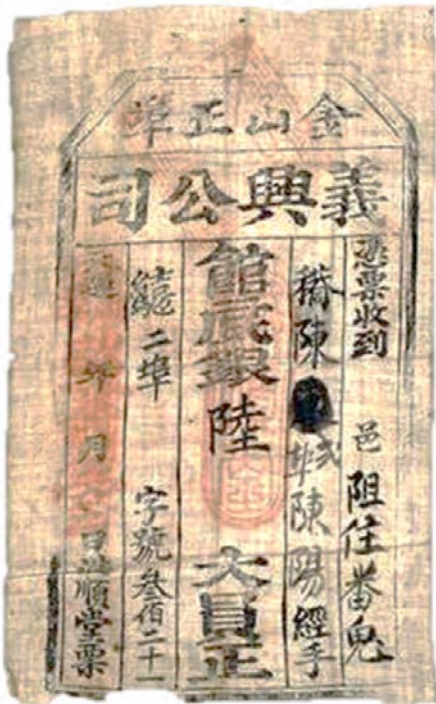 金山正埠
義興公司
憑票收到 邑 阻住番鬼
陳 弍埠陳陽經手
館底銀陸大員正
二埠 字號叁佰二十一
年 月 日 順堂票